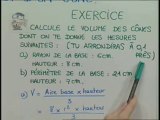 EXERCICE
CALCULE LE VOLUME DES CÔNES
DONT ON TE DONNE LES MESURES
SUIVANTES : (TU ARRONDIRAS À 0,1
PRÈS)
a) RAYON DE LA BASE : 6 cm.
HAUTEUR : 8 cm
b) PÉRIMÈTRE DE LA BASE : 24 cm
HAUTEUR : 7 cm.
a) V = Aire base x hauteur
3